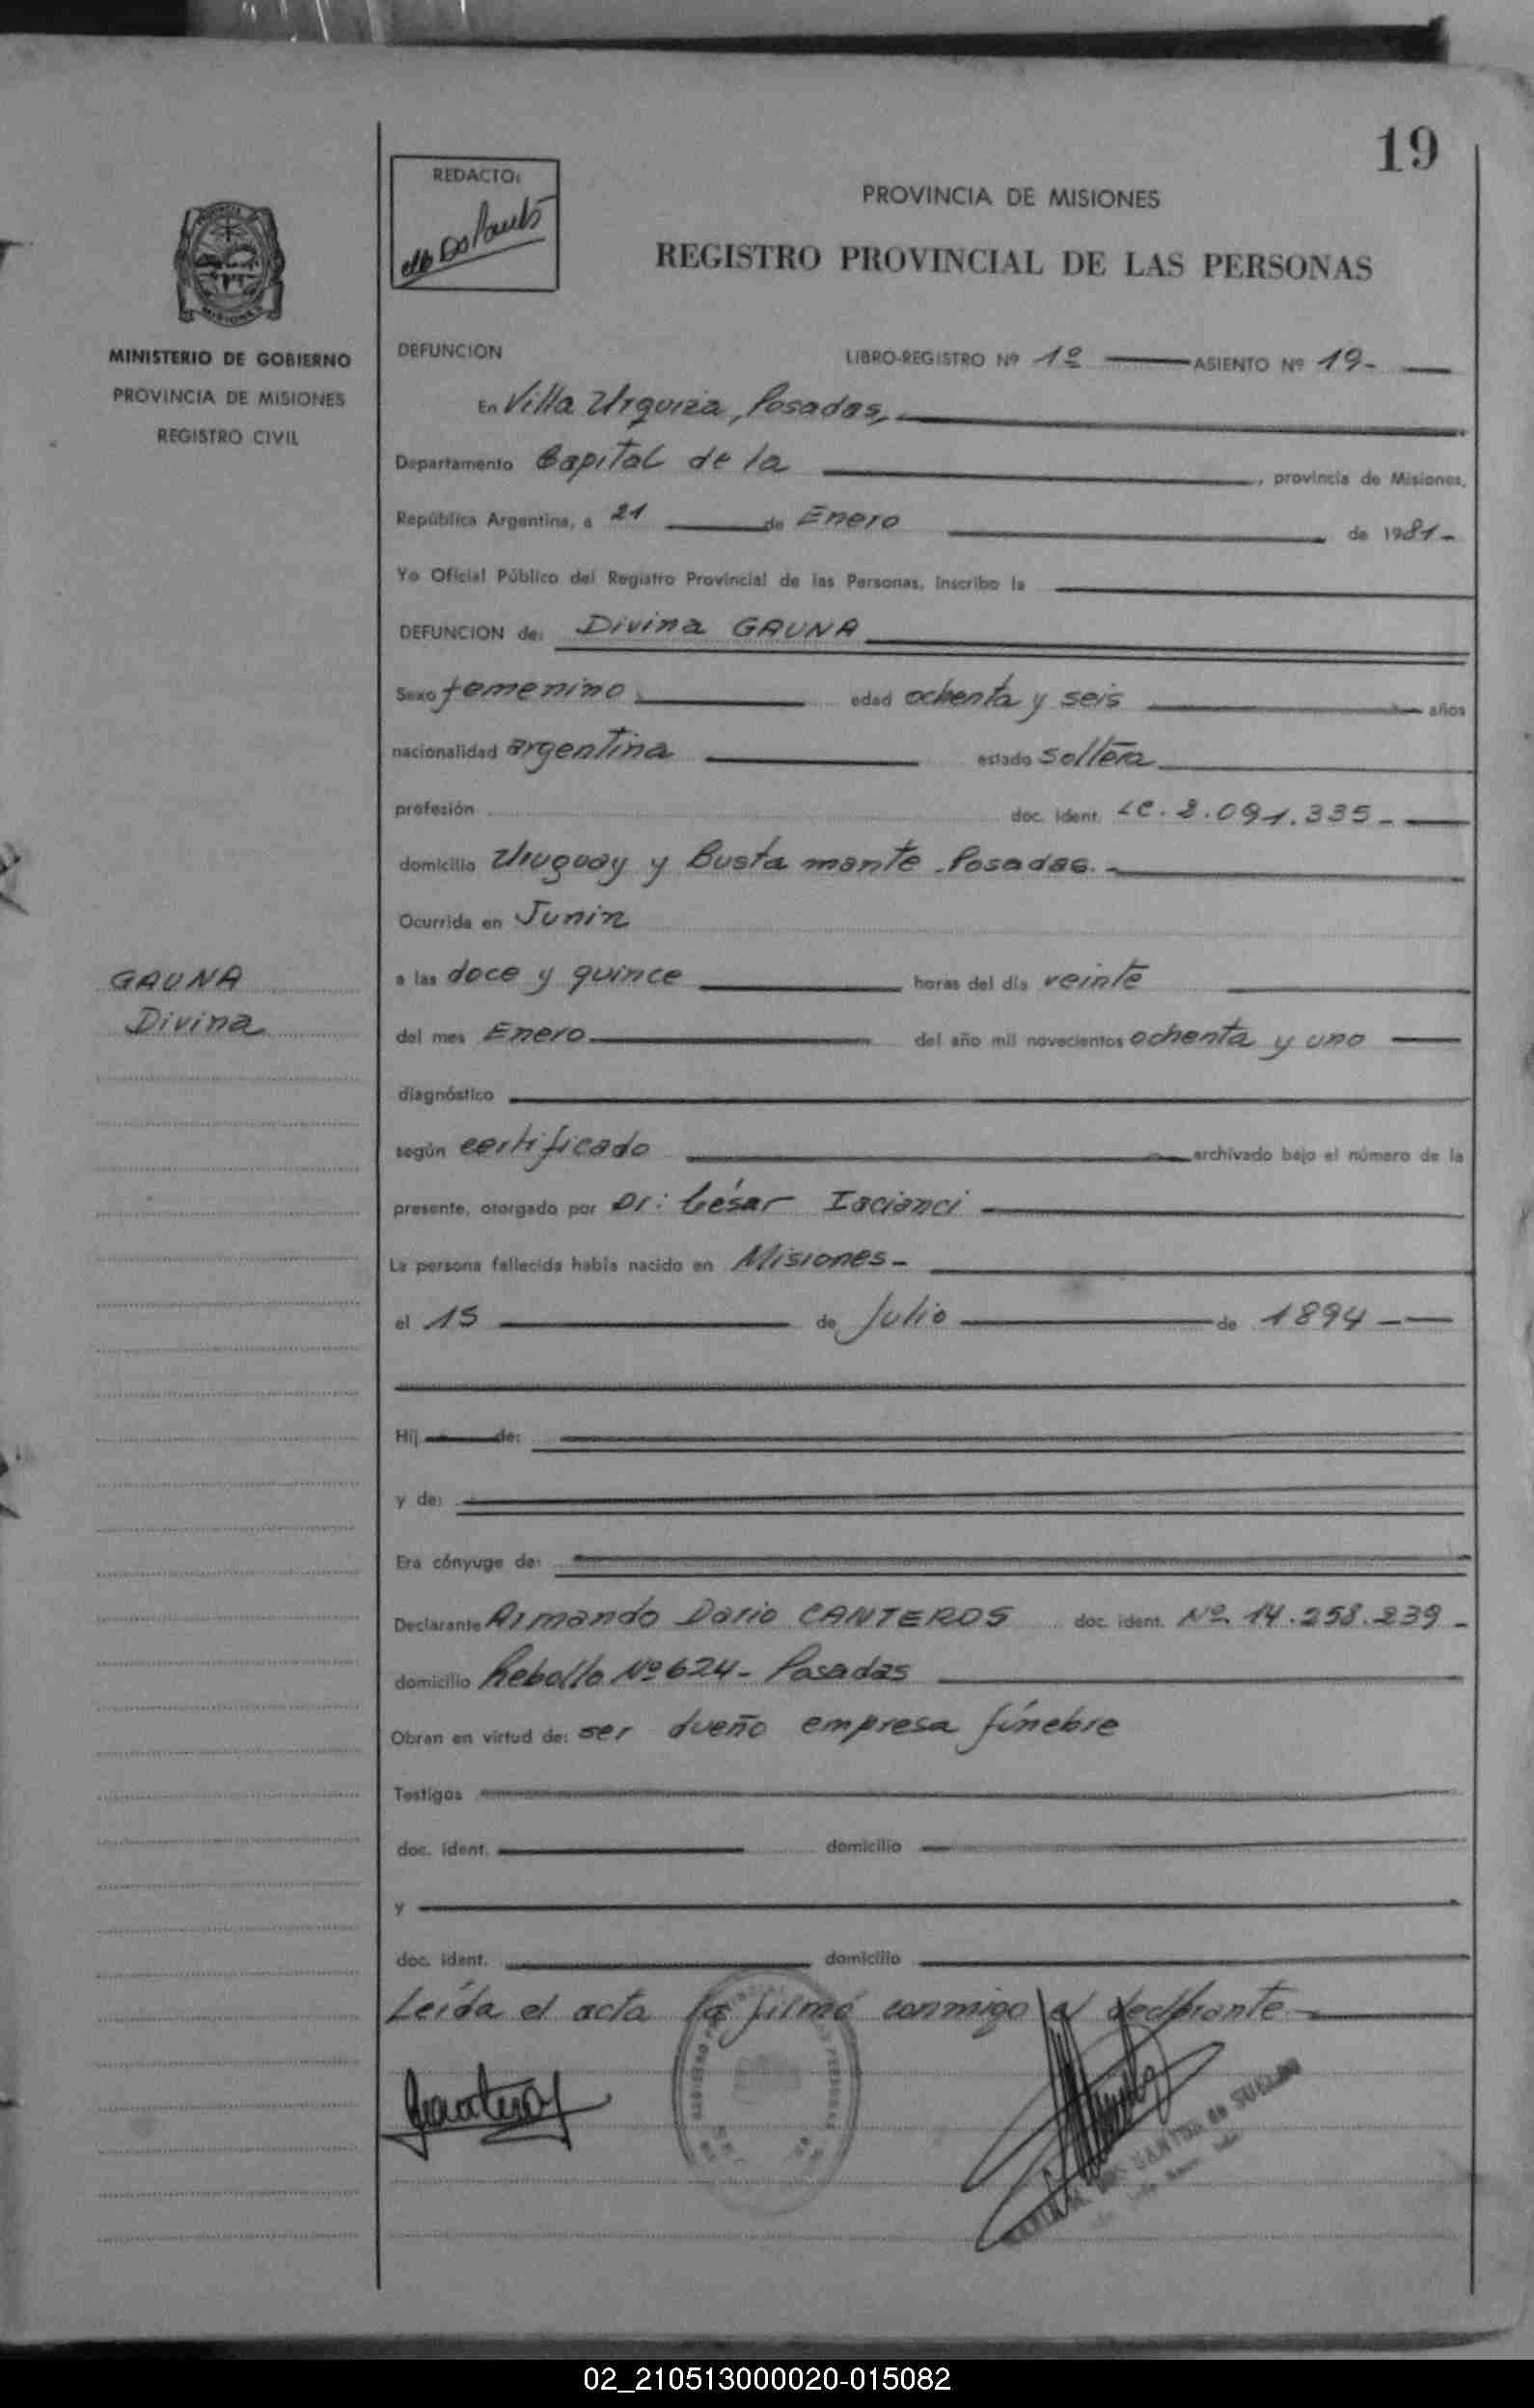 19
REDACTO:
PROVINCIA DE MISIONES
REGISTRO PROVINCIAL DE LAS PERSONAS
MISIONES
MINISTERIO DE GOBIERNO
PROVINCIA DE MISIONES
REGISTRO CIVIL
DEFUNCION LIBRO-REGISTRO Nº 1º ASIENTO Nº 19-
En Villa Urquiza, Posadas,
Departamento Capital de la , provincia de Misiones,
República Argentina, a 21 de Enero de 1981-
Yo Oficial Público del Registro Provincial de las Personas, inscribo la
DEFUNCION de: Divina GAUNA
Sexo femenino edad ochenta y seis años
nacionalidad argentina estado soltera
profesión doc. ident. LC. 2.091.335-
domicilio Uruguay y Busta mante - Posadas.-
Ocurrida en Junin
GAUNA
Divina
a las doce y quince horas del día veinte
del mes Enero del año mil novecientos ochenta y uno
diagnóstico
según certificado archivado bajo el número de la
presente, otorgado por Dr: César Iacianci
La persona fallecida había nacido en Misiones-
el 15 de Julio de 1894-
Hij de:
y de:
Era cónyuge de:
Declarante Armando Dario CANTEROS doc. ident. Nº. 14.258.239-
domicilio Rebollo Nº 624- Posadas
Obran en virtud de: ser dueño empresa fúnebre
Testigos
doc. ident. domicilio
y
doc. ident. domicilio
Leída el acta la firmó conmigo el declarante
02_210513000020-015082